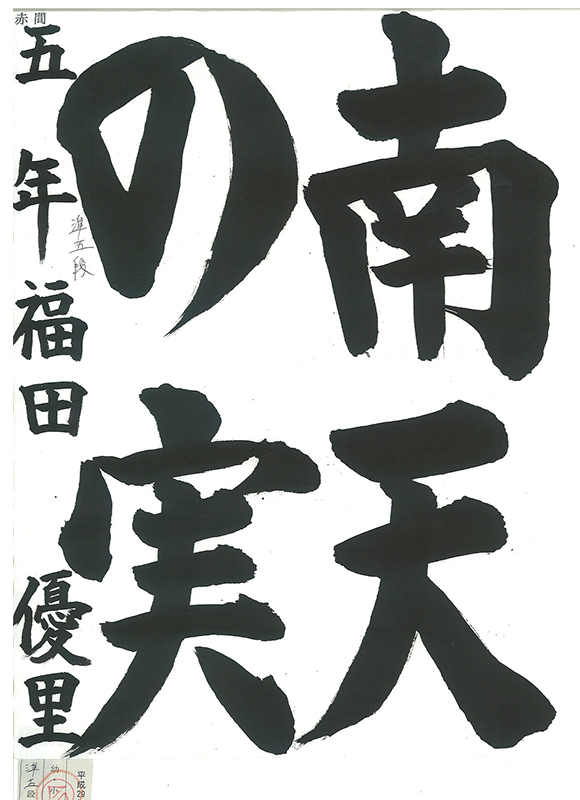 赤間
南天
の実
五年福田優里
準五段
平成29
幼・少
準五段